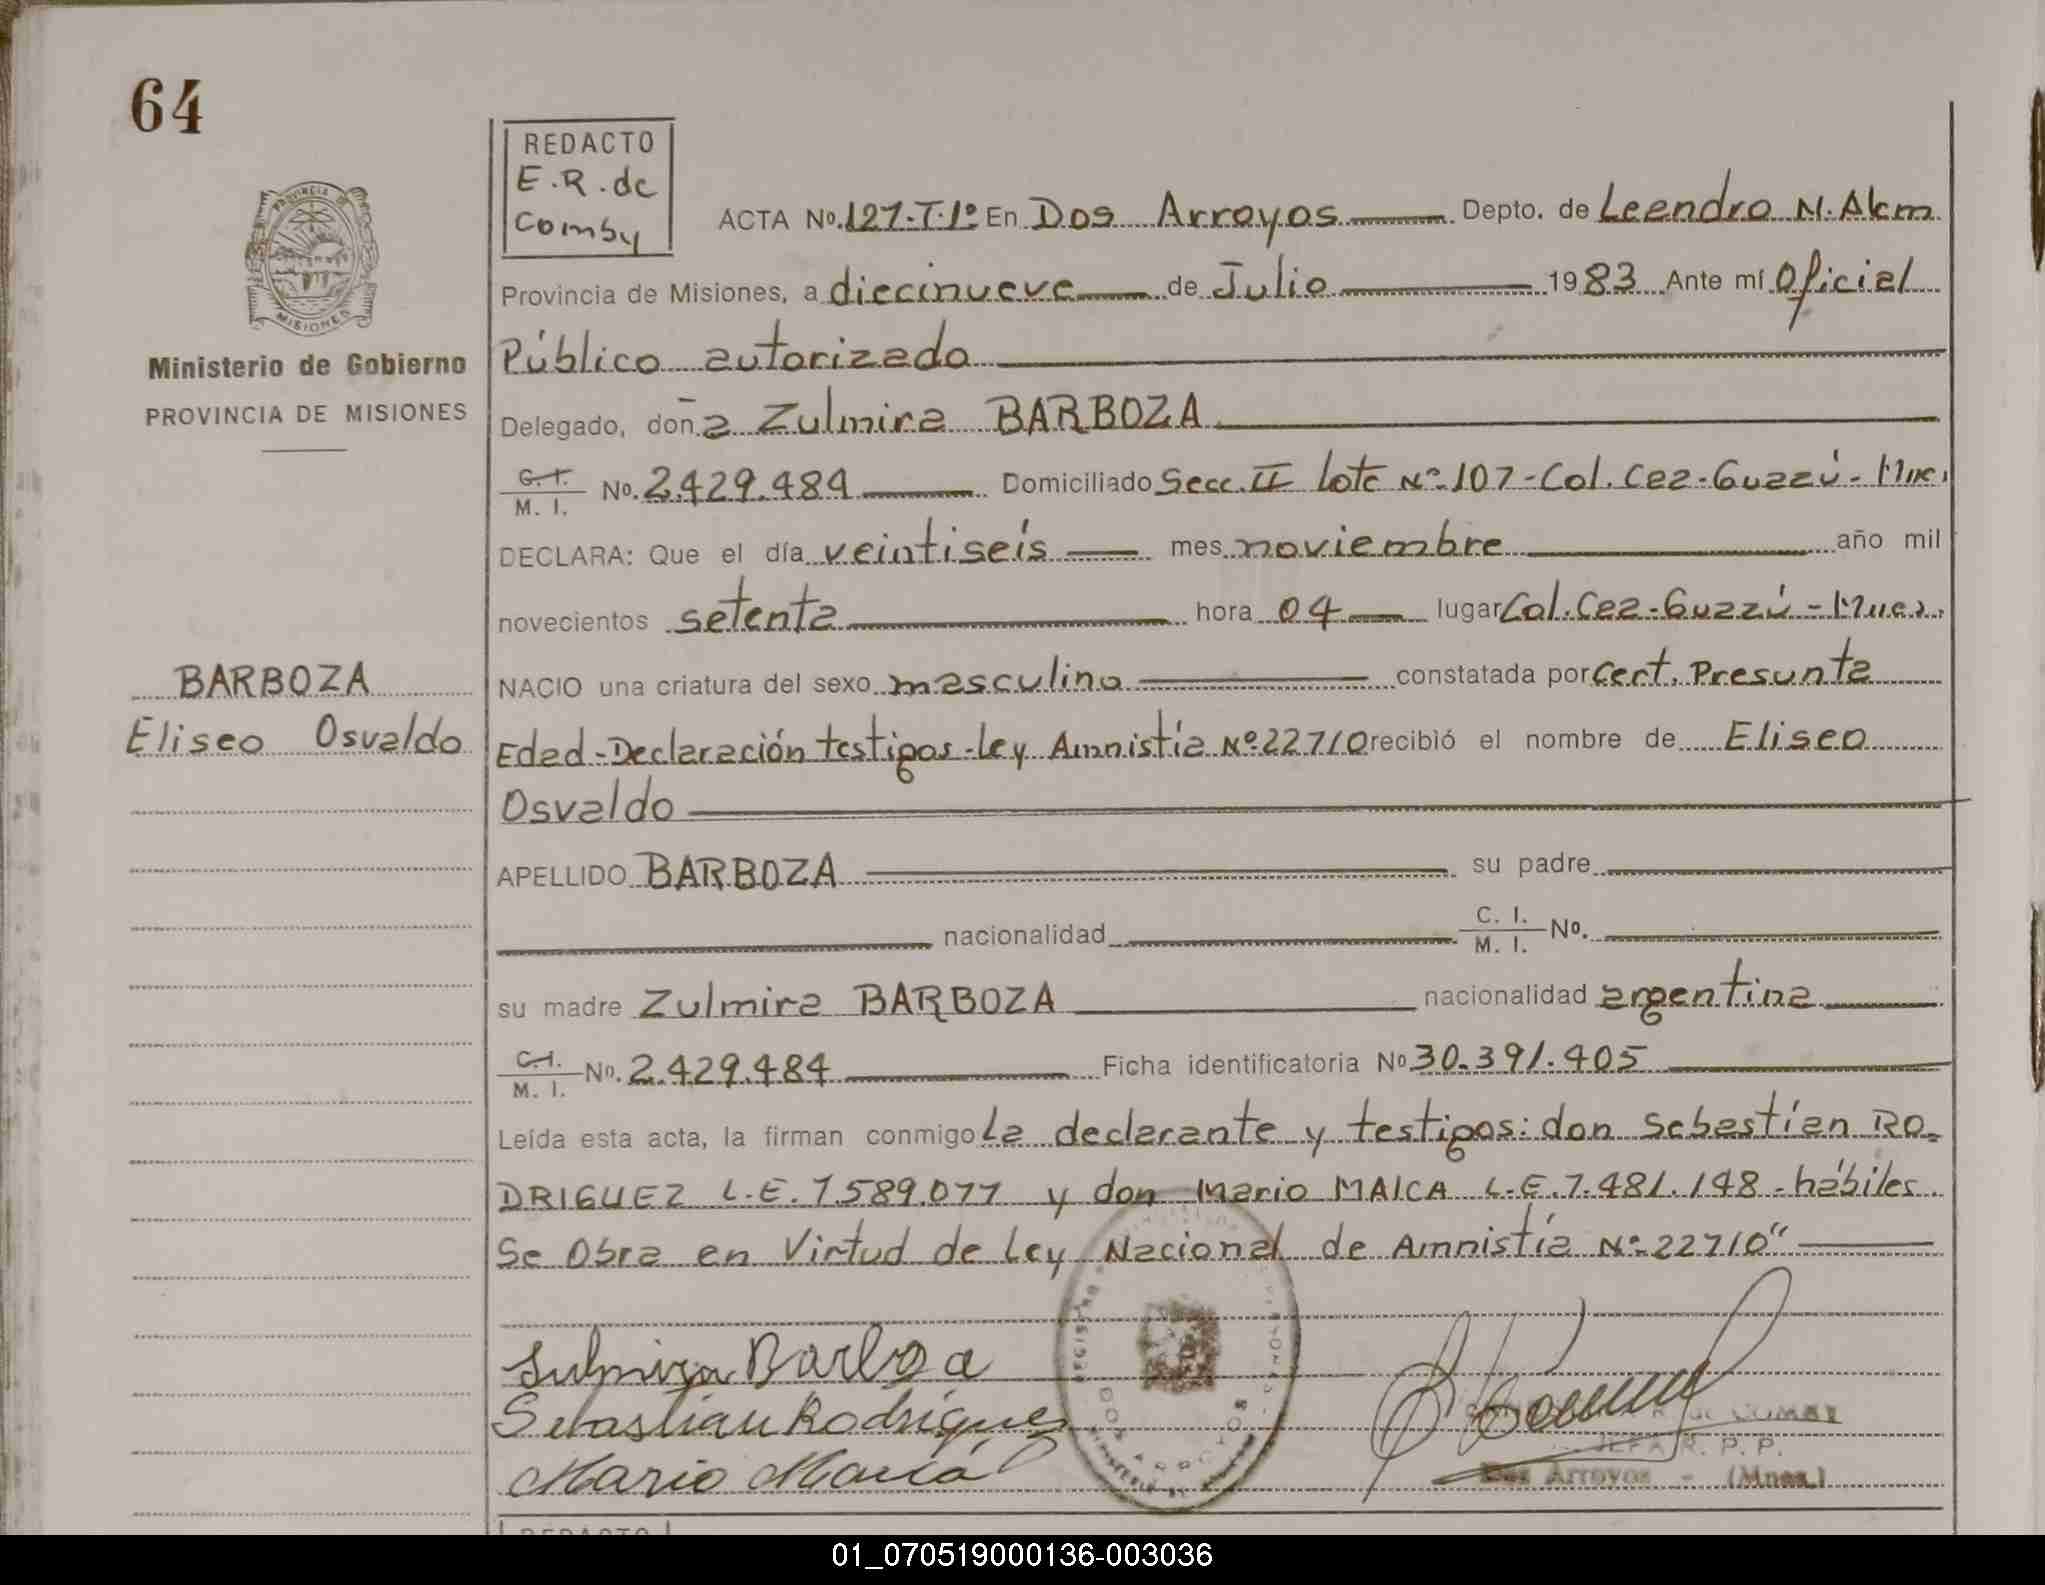 64
REDACTO
E.R. de
Comby
PROVINCIA DE
MISIONES
Ministerio de Gobierno
PROVINCIA DE MISIONES
ACTA No. 127-T.1º En Dos Arroyos Depto. de Leandro N. Alem
Provincia de Misiones, a diecinueve de Julio 1983 Ante mí Oficial
Público autorizado
Delegado, doña Zulmira BARBOZA
C.I. M. I. No. 2.429.484 Domiciliado Secc. II lote Nº 107-Col. Caa-Guazú-Mnes.
DECLARA: Que el día veintiseís mes noviembre año mil
novecientos setenta hora 04 lugar Col. Caa-Guazú-Mnes.
BARBOZA
Eliseo Osvaldo
NACIO una criatura del sexo masculino constatada por Cert. Presunta
Edad-Declaración testigos-Ley Amnistía Nº 22710 recibió el nombre de Eliseo
Osvaldo
APELLIDO BARBOZA su padre
nacionalidad C. I. M. I. No.
su madre Zulmira BARBOZA nacionalidad argentina
C.I. M. I. No. 2.429.484 Ficha identificatoria No 30.391.405
Leída esta acta, la firman conmigo La declarante y testigos: don Sebastían RO-
DRIGUEZ L.E. 7.589.077 y don Mario MAICA L.E. 7.481.148-hábiles.
Se Obra en Virtud de Ley Nacional de Amnistía Nº 22710"
Sulmira Barboza
Sebastian Rodrigues
Mario
DOS ARROYOS
COMBY
JEFA R. P. P.
Dos Arroyos - (Mnes.)
REDACTO
01_070519000136-003036